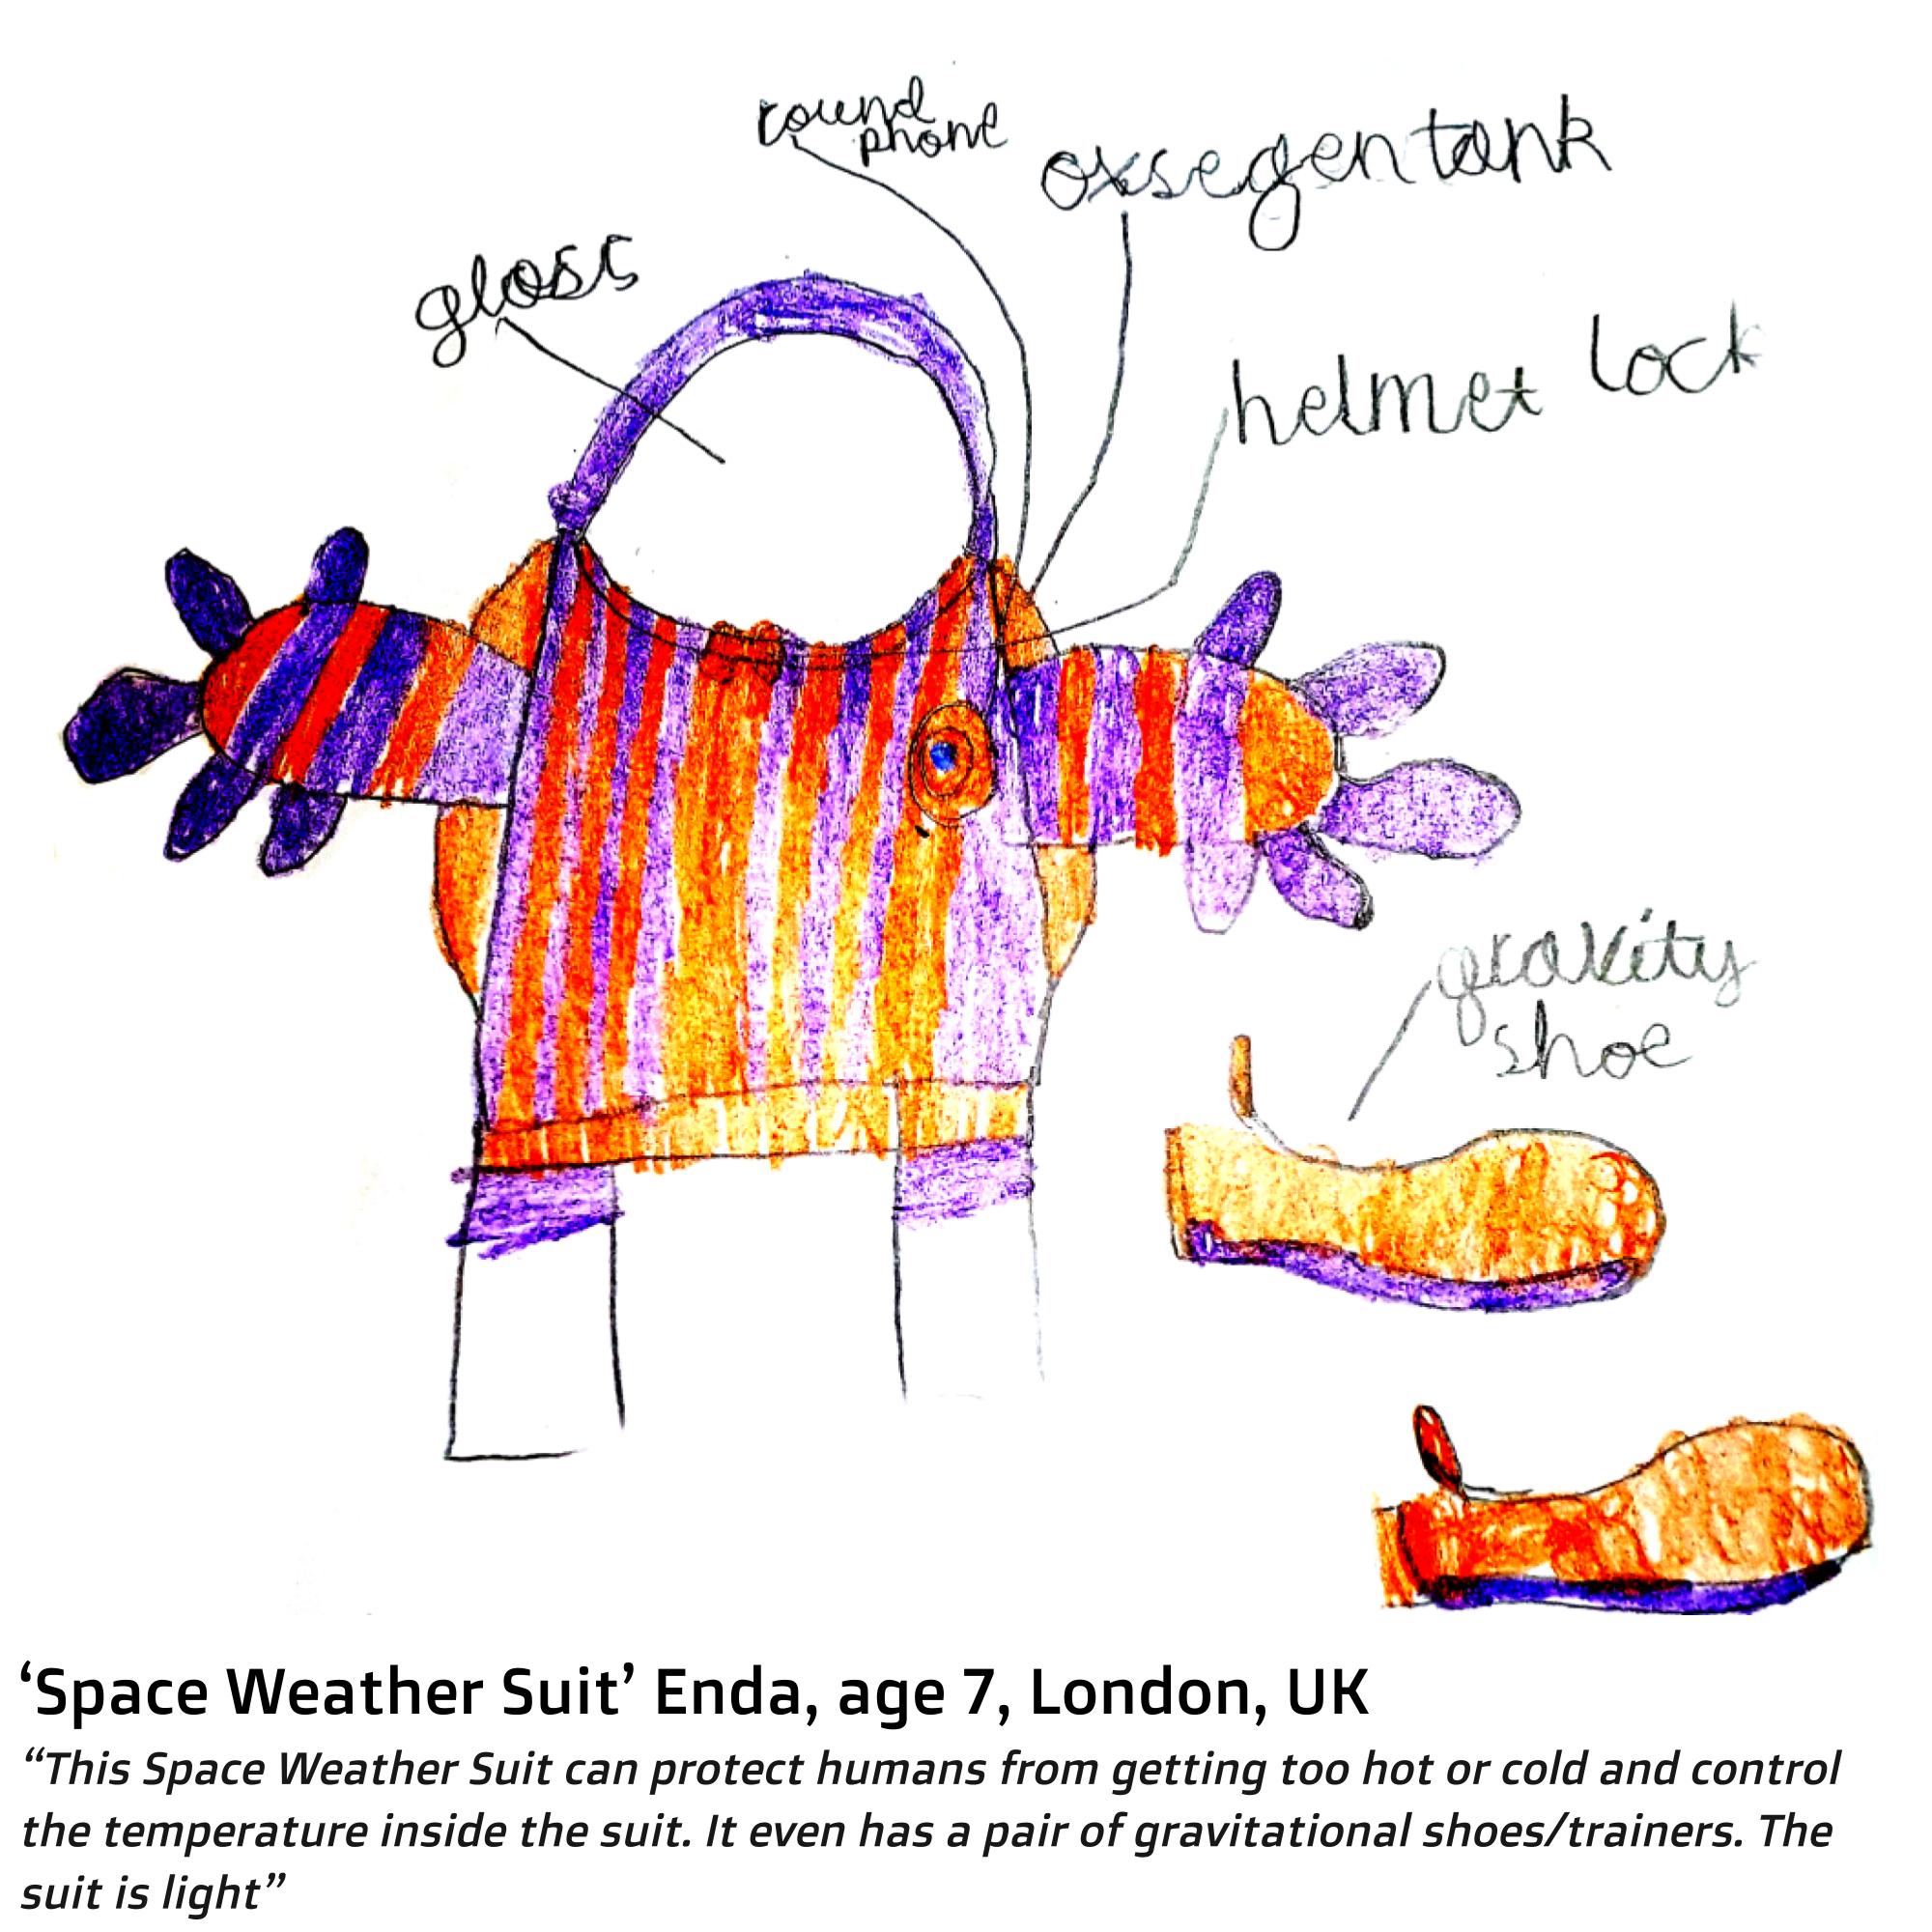 round
phone
oxsegen tank
glass
helmet lock
gravity
shoe
‘Space Weather Suit’ Enda, age 7, London, UK
“This Space Weather Suit can protect humans from getting too hot or cold and control
the temperature inside the suit. It even has a pair of gravitational shoes/trainers. The
suit is light”